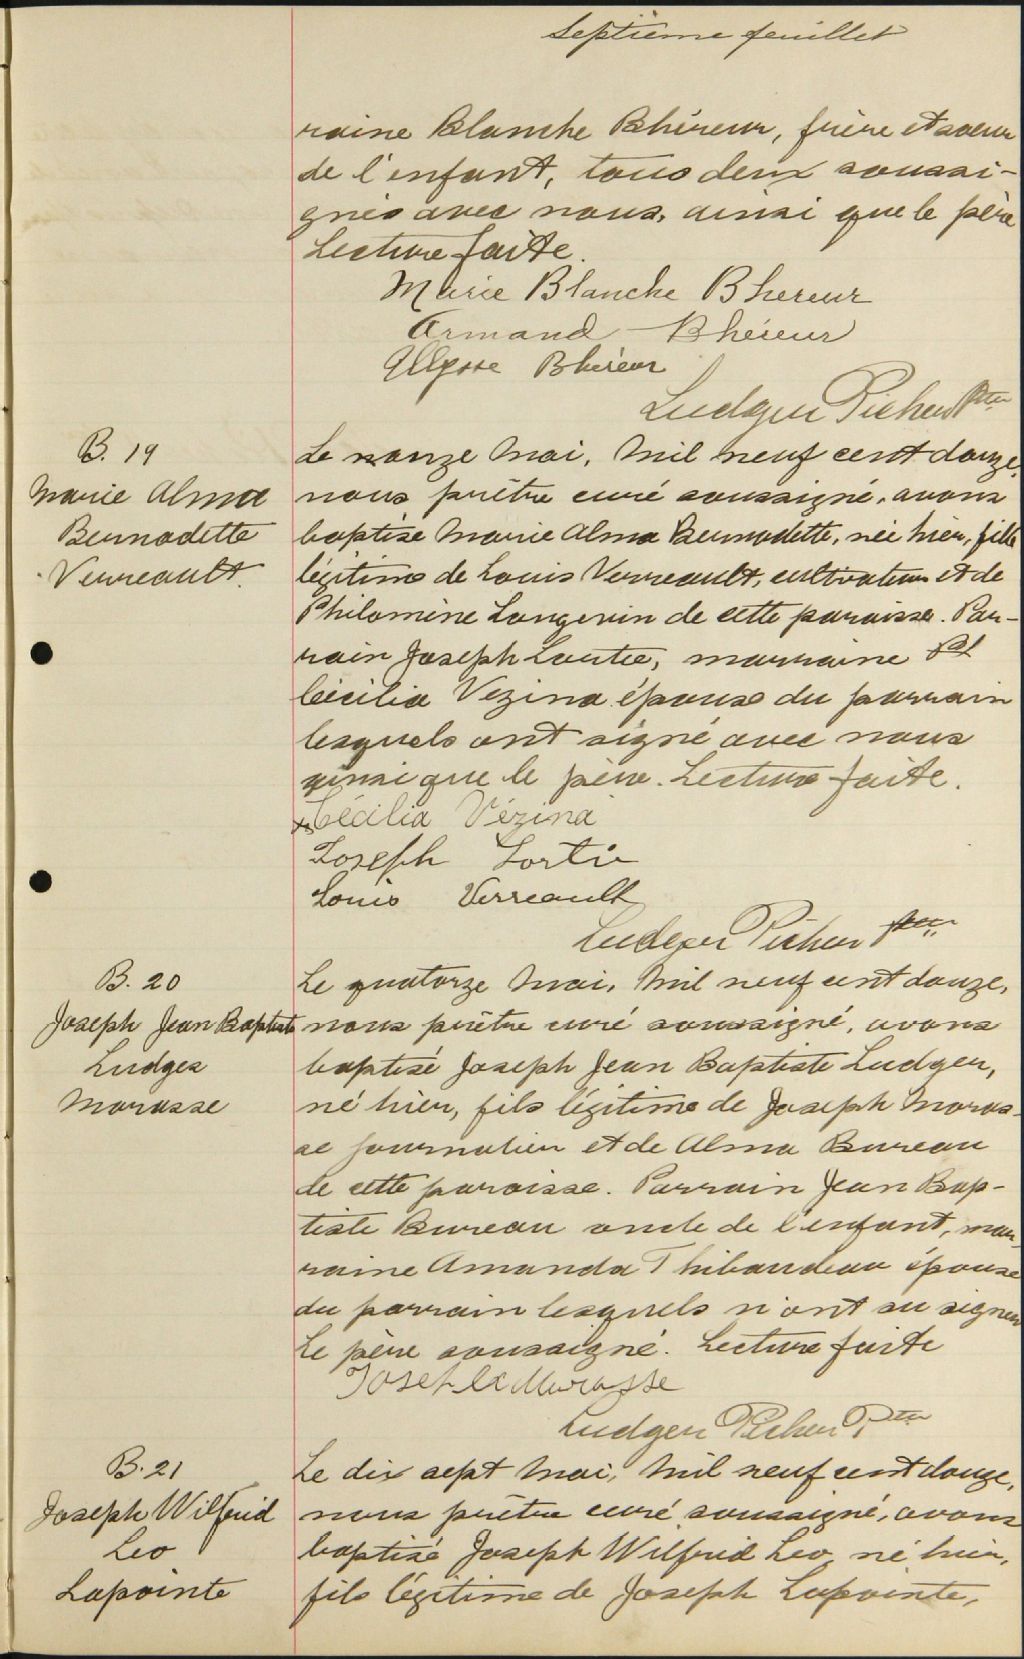 Septième feuillet
raine Blanche Bhéreur, frère et soeur
de l'enfant, tous deux soussi-
gnés avec nous, ainsi que le père
Lecture faite.
Marie Blanche Bhereur
Armand Bhéreur
Bhéreur
Ludger Picher Ptre
B. 19
Marie Alma
Bernadette
Verreault.
Le onze Mai, Mil neuf cent douze,
nous prêtre curé soussigné, avons
baptisé Marie Alma Bernadette, née hier, fille
légitime de Louis Verreault, cultivateur et de
Philomène Langevin de cette paroisse. Par-
rain Joseph Lortie, marraine
Cécilia Vezina épouse du parrain
lesquels ont signé avec nous
ainsi que le père. Lecture faite.
Cécilia Vézina
Joseph Lortie
Louis Verreault
Ludger Picher Ptre
B. 20
Joseph Jean Baptiste
Ludger
Morasse
Le quatorze Mai, Mil neuf cent douze,
nous prêtre curé soussigné, avons
baptisé Joseph Jean Baptiste Ludger,
né hier, fils légitime de Joseph Moras-
se journalier et de Alma Bureau
de cette paroisse. Parrain Jean Bap-
tiste Bureau oncle de l'enfant, mar-
raine Amanda Thibaudeau épouse
du parrain lesquels n'ont su signer
Le père soussigné. Lecture faite
Joseph Morasse
Ludger Picher Ptre
B. 21
Joseph Wilfrid
Leo
Lapointe
Le dix sept Mai, Mil neuf cent douze,
nous prêtre curé soussigné, avons
baptisé Joseph Wilfrid Leo, né hier,
fils légitime de Joseph Lapointe,